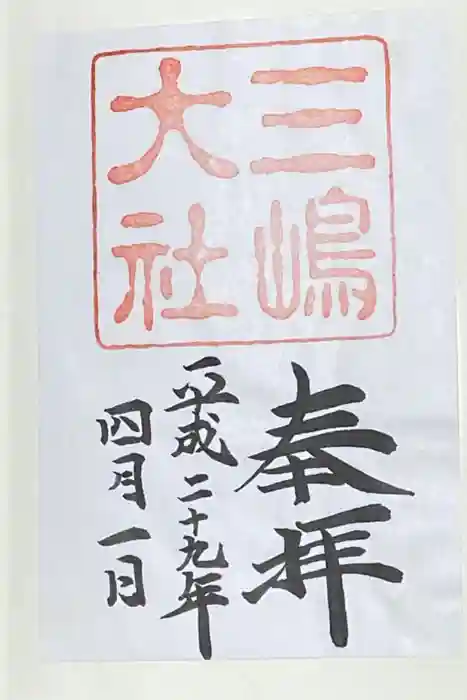 三嶋
大社
奉拝
平成二十九年
四月一日